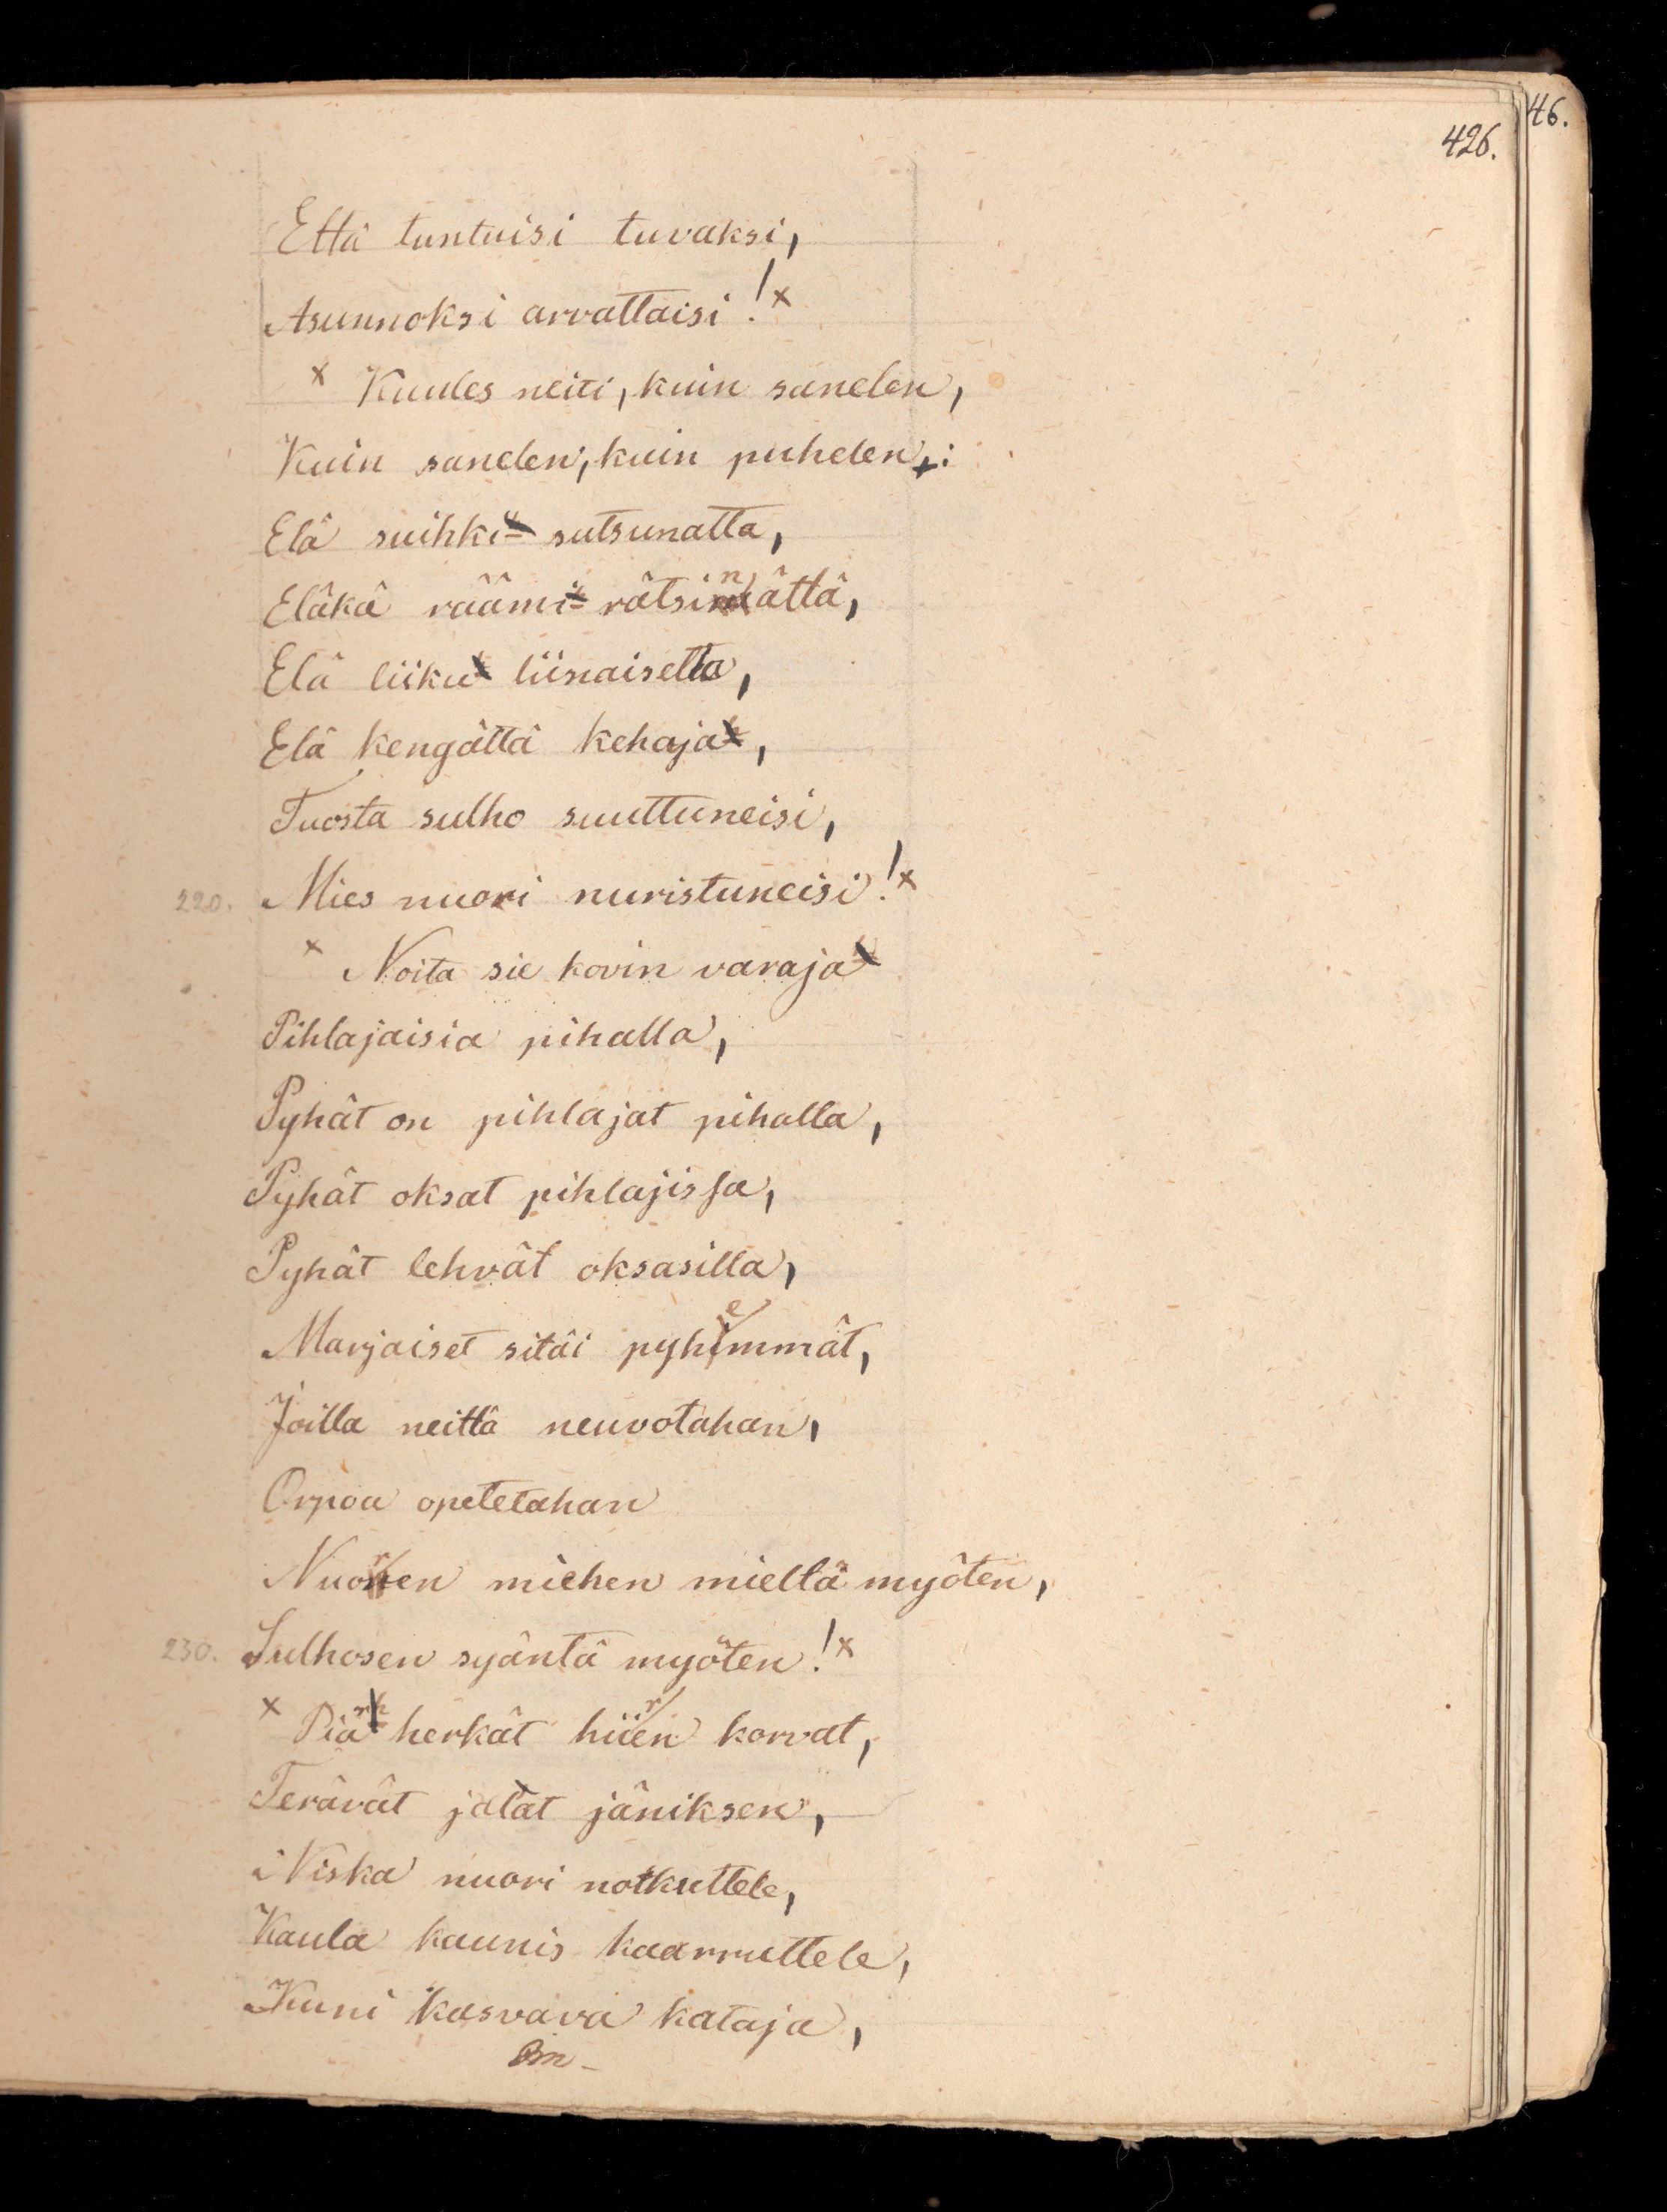 46.
426.
Että tuntuisi tuvaksi,
Asunnoksi arvattaisi!x
x Kuules neiti, kuin sanelen,
Kuin sanelen, kuin puhelen:
Elä suihki sutsunatta,
Eläkä räämi rätsinättä,
Elä liiku liinaisetta,
Elä kengättä kehaja,
Tuosta sulho suuttuneisi,
220. Mies nuori nuristuneisi!x
x Noita sie kovin varaja
Pihlajaisia pihalla,
Pyhät on pihlajat pihalla,
Pyhät oksat pihlajissa,
Pyhät lehvät oksasilla,
Marjaiset sitäi pyhemmät,
Joilla neittä neuvotahan,
Orpoa opetetahan
Nuoren miehen mieltä myöten,
230. Sulhosen syäntä myöten!x
x Piä herkät hiiren korvat,
Terävät jalat jäniksen,
Niska nuori notkuttele,
Kaula kaunis kaarruttele,
Kuni kasvava kataja,